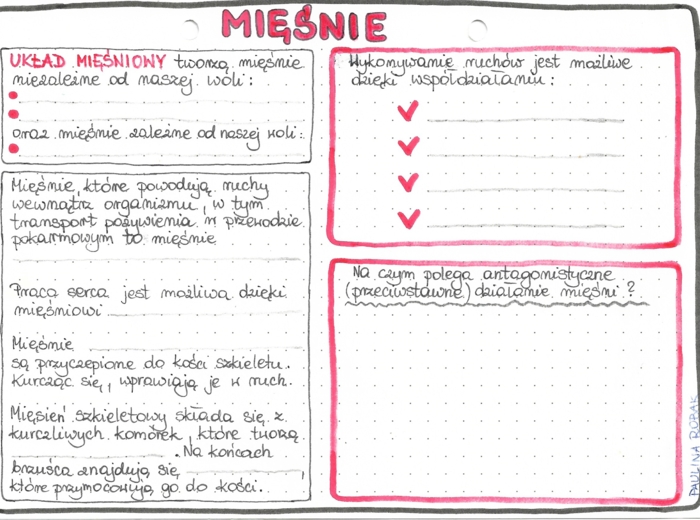 MIĘŚNIE
UKŁAD MIĘŚNIOWY tworzą mięśnie
niezależne od naszej woli:
oraz mięśnie zależne od naszej woli:
Mięśnie, które powodują ruchy
wewnątrz organizmu, w tym
transport pożywienia w przewodzie
pokarmowym to mięśnie
Praca serca jest możliwa dzięki
mięśniowi
Mięśnie
są przyczepione do kości szkieletu.
Kurcząc się, wprawiają je w ruch.
Mięsień szkieletowy składa się z
kurczliwych komórek, które tworzą
. Na końcach
brzuśca znajdują się
które przymocowują go do kości.
Wykonywanie ruchów jest możliwe
dzięki współdziałaniu:
Na czym polega antagonistyczne
(przeciwstawne) działanie mięśni?
PAULINA ROBAK